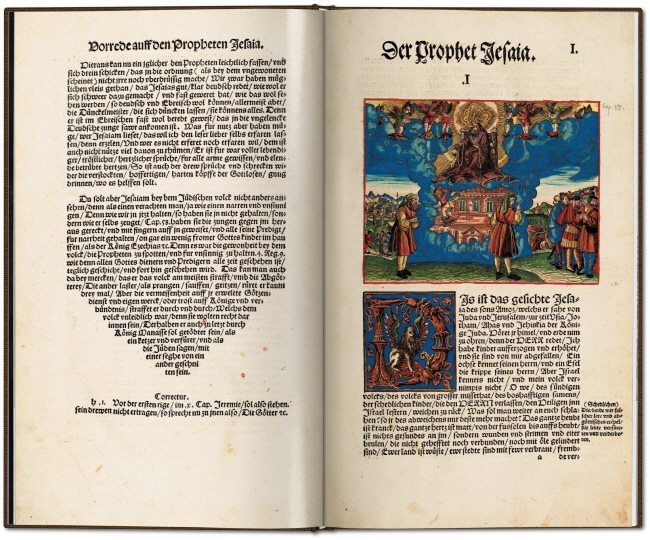 Vorrede auff den Propheten Jesaia.
Hieraus kan nu ein jglicher den Propheten leichtlich fassen/ vnd
sich drein schicken/ das jn die ordnung (als bey dem vngewoneten
scheinet) nicht jrre noch verdrüssig mache/ Wir zwar haben müg-
lichen vleis gethan/ das Jesaias gut/ klar deudsch redet/ wie wol er
sich schweer dazu gemacht/ vnd fast gewert hat/ wie das wol se-
hen werden/ so deudsch vnd Ebreisch wol können/ allermeist aber/
die Dünckelmeister/ die sich düncken lassen/ sie könnens alles. Denn
er ist im Ebreischen fast wol beredt gewest/ das jn die vngelencke
Deudsche zunge sawr ankomen ist. Was für nutz aber haben mü-
ge/ wer Jesaiam lieset/ das wil ich den leser lieber selbs erfaren las-
sen/ denn erzelen/ Vnd wer es nicht erferet noch erfaren wil/ dem ist
auch nicht nütze viel dauon zu rhümen/ Er ist für war voller lebendi-
ger/ tröstlicher/ hertzlicher sprüche/ für alle arme gewissen/ vnd elen-
de betrübte hertzen/ So ist auch der drew sprüche vnd schrecken wi-
der die verstockten/ hoffertigen/ harten köpffe der Gottlosen/ gnug
drinnen/ wo es helffen solt.
Du solt aber Jesaiam bey dem Jüdischen volck nicht anders an-
sehen/ denn als einen verachten man/ ja wie einen narren vnd vnsinni-
gen/ Denn wie wir jn jtzt halten/ so haben sie jn nicht gehalten/ son-
dern wie er selbs zeuget/ Cap. 58. haben sie die zungen gegen jm her-
aus gereckt/ vnd mit fingern auff jn geweiset/ vnd alle seine Predigt/
fur narrheit gehalten/ on gar ein wenig fromer Gottes kinder im hau-
ffen/ als der König Ezechias ꝛc. Denn es war die gewonheit bey dem
volck/ die Propheten zu spotten/ vnd fur vnsinnig zu halten 4. Reg. 9.
wie denn allen Gottes dienern vnd Predigern alle zeit geschehen ist/
teglich geschicht/ vnd fort hin geschehen wird. Das kan man auch
da bey mercken/ das er das volck am meisten strafft/ vmb die Abgöt-
terey/ Die ander laster/ als prangen/ sauffen/ geitzen/ rüret er kaum
drey mal/ Aber die vermessenheit auff jr erwelete Götzen-
dienst vnd eigen werck/ oder trost auff Könige vnd ver-
bündnis/ straffet er durch vnd durch/ Welchs dem
volck vnleidlich war/ denn sie wolten recht dar
innen sein/ Derhalben er auch zu letzt durch
König Manasse sol getödtet sein/ als
ein ketzer vnd verfürer/ vnd als
die Jüden sagen/ mit
einer seghe von ein
ander geschni
tten sein.
Correctur.
h .1. Vor der ersten rige/ im. x. Cap. Jeremie/ sol also stehen.
sein drewen nicht ertragen/ so sprecht nu zu jnen also/ Die Götter ꝛc.
Der Prophet Jesaia.
I.
.I
DJs ist das gesichte Jesa-
ia des sons Amoz/ welchs er sahe von
Juda vnd Jerusalem/ zur zeit Vsia/ Jo-
tham/ Ahas vnd Jehiskia der Köni-
ge Juda. Höret jr himel/ vnd erde nim
zu ohren/ denn der HERR redet/ Jch
habe kinder aufferzogen vnd erhöhet/
vnd sie sind von mir abgefallen/ Ein
ochse kennet seinen herrn/ vnd ein Esel
die krippe seines herrn/ Aber Jsrael
kennets nicht/ vnd mein volck ver-
nimpts nicht/ O we/ des sündigen
volcks/ des volcks von grosser missethat/ des boshafftigen samens/
der schedlichen kinder/ die den HERRN verlassen/ den Heiligen jnn
Jsrael lestern/ weichen zu rück/ Was sol man weiter an euch schla-
hen/ so jr des abweichens nur deste mehr machet? Das gantze heubt
ist kranck/ das gantze hertz ist matt/ von der fussolen bis auffs heubt/
ist nichts gesundes an jm/ sondern wunden vnd striemen vnd eiter
beulen/ die nicht gehefftet noch verbunden/ noch mit öle gelindert
sind/ Ewer land ist wüste/ ewr stedte sind mit fewr verbrant/ fremb-
a
de ver-
(Schedlichen)